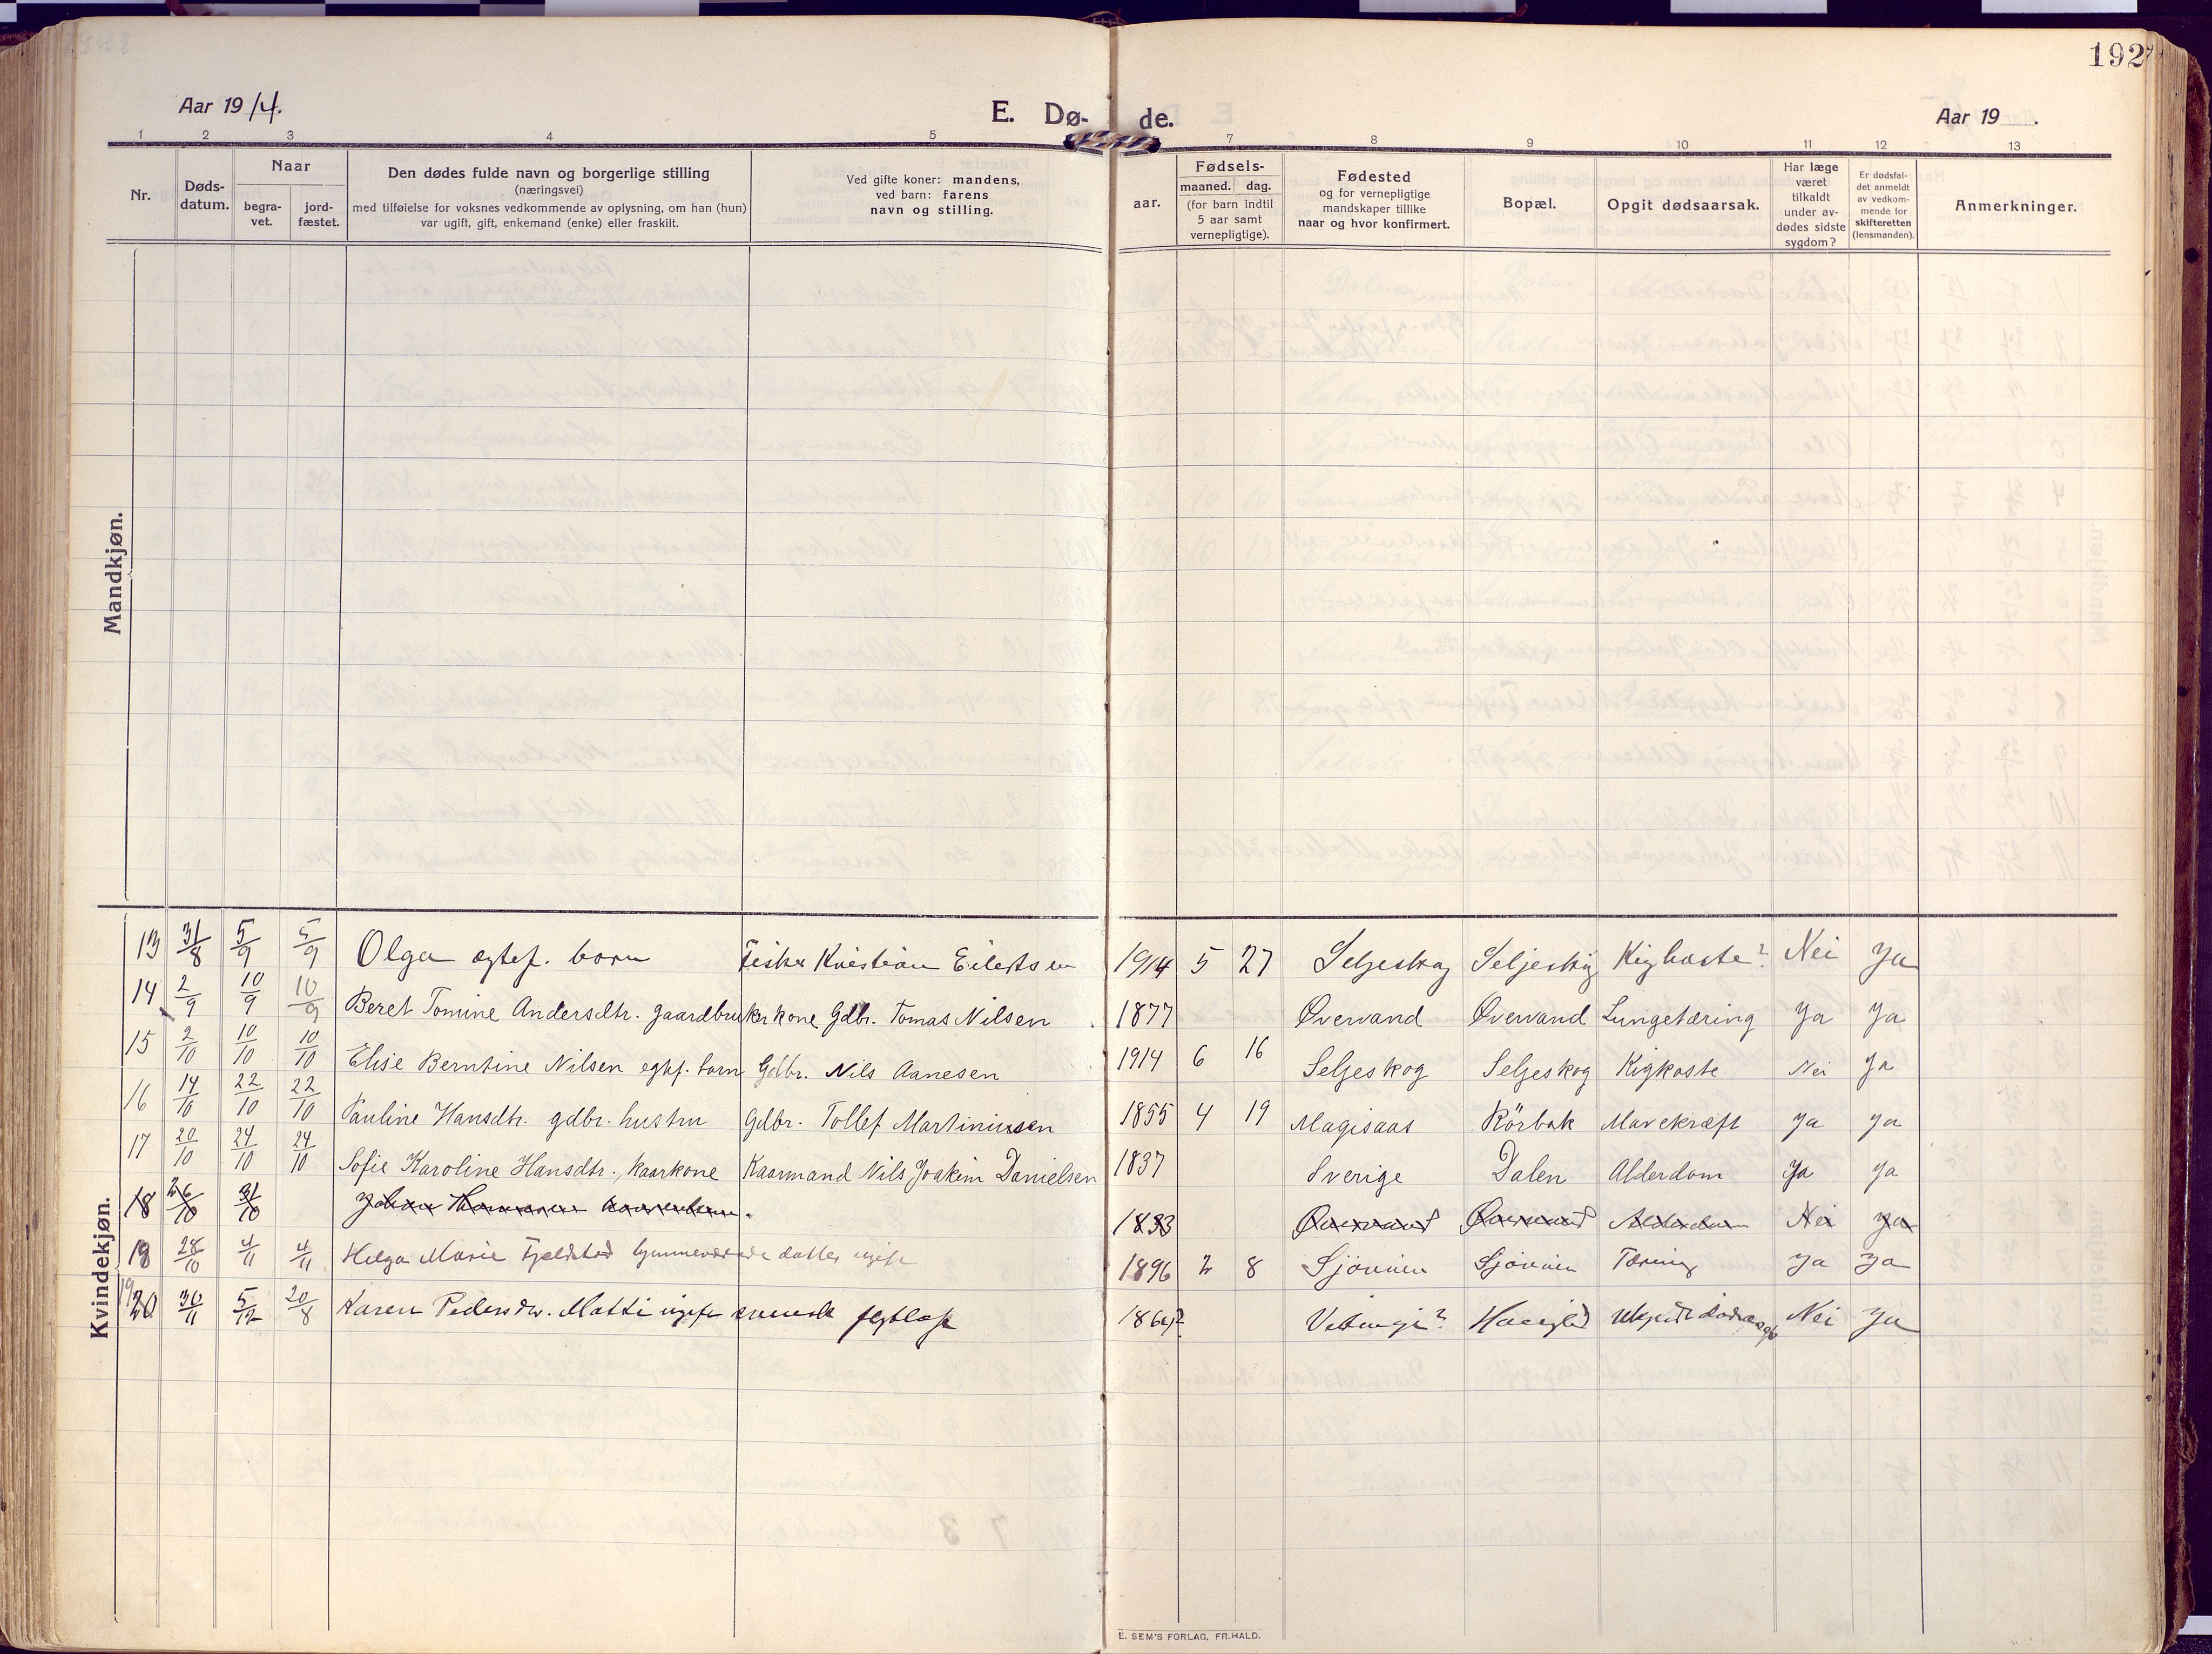 192
Aar 1914.
E. Dø- de.
Aar 19 .
1 2 3 4 5 7 8 9 10 11 12 13
Nr.
Døds-
datum.
Naar
begra-
vet.
jord-
fæstet.
Den dødes fulde navn og borgerlige stilling
(næringsvei)
med tilføielse for voksnes vedkommende av oplysning, om han (hun)
var ugift, gift, enkemand (enke) eller fraskilt.
Ved gifte koner: mandens,
ved barn: farens
navn og stilling.
aar.
Fødsels-
maaned. dag.
(for barn indtil
5 aar samt
vernepligtige).
Fødested
og for vernepligtige
mandskaper tillike
naar og hvor konfirmert.
Bopæl.
Opgit dødsaarsak.
Har læge
været
tilkaldt
under av-
dødes sidste
sygdom?
Er dødsfal-
det anmeldt
av vedkom-
mende for
skifteretten
(lensmanden).
Anmerkninger.
Mandkjøn.
Kvindekjøn.
13 31/8 5/9 5/9 Olga egtef. barn Fisker Kristian Eilertsen 1914 5 27 Seljeskog Seljeskog Kighoste? Nei Ja
14 2/9 10/9 10/9 Beret Tomine Andersdtr. gaardbrukerkone Gdbr. Tomas Nilsen 1877 Øvervand Øvervand Lungetæring Ja Ja
15 2/10 10/10 10/10 Elise Berntine Nilsen egtef. barn Gdbr. Nils Aanesen 1914 6 16 Seljeskog Seljeskog Kigkoste Nei Ja
16 14/10 22/10 22/10 Pauline Hansdtr. gdbr. hustru Gdbr. Tollef Martiniusen 1855 4 19 Magisaas Rörbak Mavekræft Ja Ja
17 20/10 24/10 24/10 Sofie Karoline Hansdtr., kaarkone Kaarmand Nils Joakim Danielsen 1837 Sverige Dalen Alderdom Ja Ja
18 26/10 31/10 Johan 1833 Øvervand Øvervand Alderdom Nei Ja
19 28/10 4/11 4/11 Helga Marie Fjeldstad hjemmeværende datter ugift 1896 2 8 Sjönnen Sjönnen Tæring Ja Ja
19 20 30/11 5/12 20/8 Karen Pedersdtr. Matti ugift svensk flytlap Nei Ja
E. SEM'S FORLAG, FR.HALD.